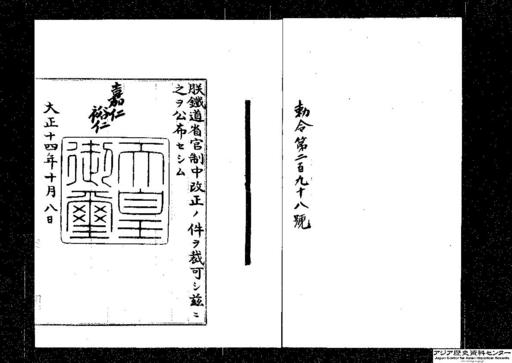 勅令第二百九十八號
朕鐵道省官制中改正ノ件ヲ裁可シ玆ニ
之ヲ公布セシム
嘉仁
裕仁
天皇
御璽
大正十四年十月八日
アジア歴史資料センター
Japan Center for Asian Historical Records